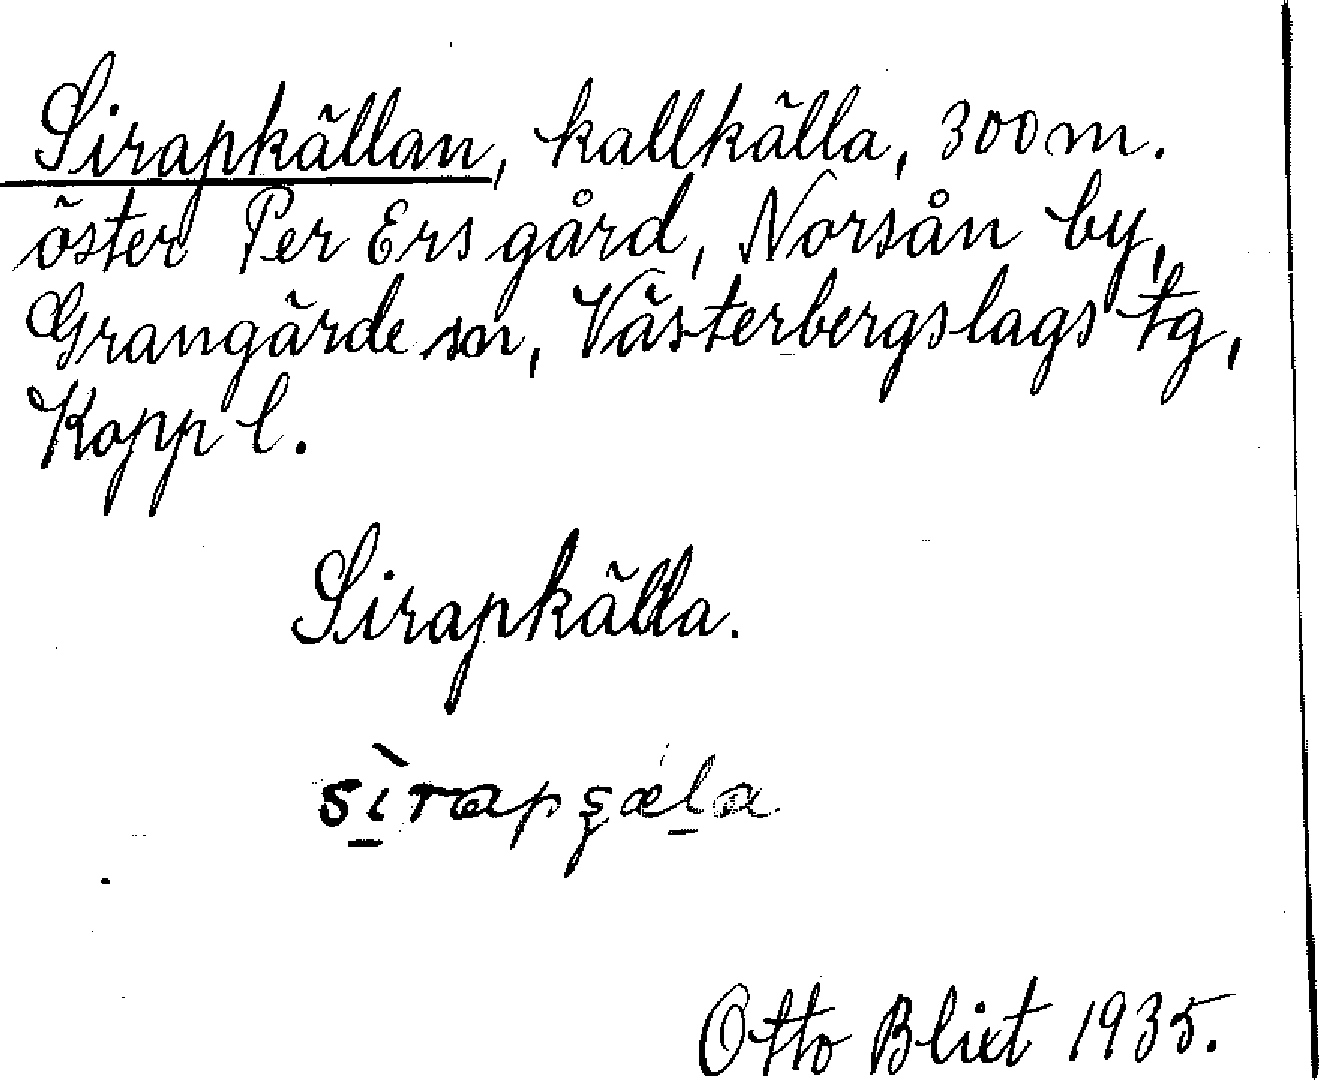 Sirapkällan, kallkälla, 300 m.
öster Per Ers gård, Norsån by,
Grangärde sn, Västerbergslags tg,
Kopp l.
Sirapkälla.
sìrapʂæla
Otto Blixt 1935.